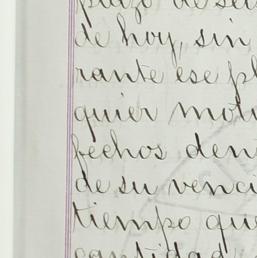 plazo de seis
de hoy, sin
rante ese pl
quier motiv
fechos den
de su venci
tiempo que
cantidad